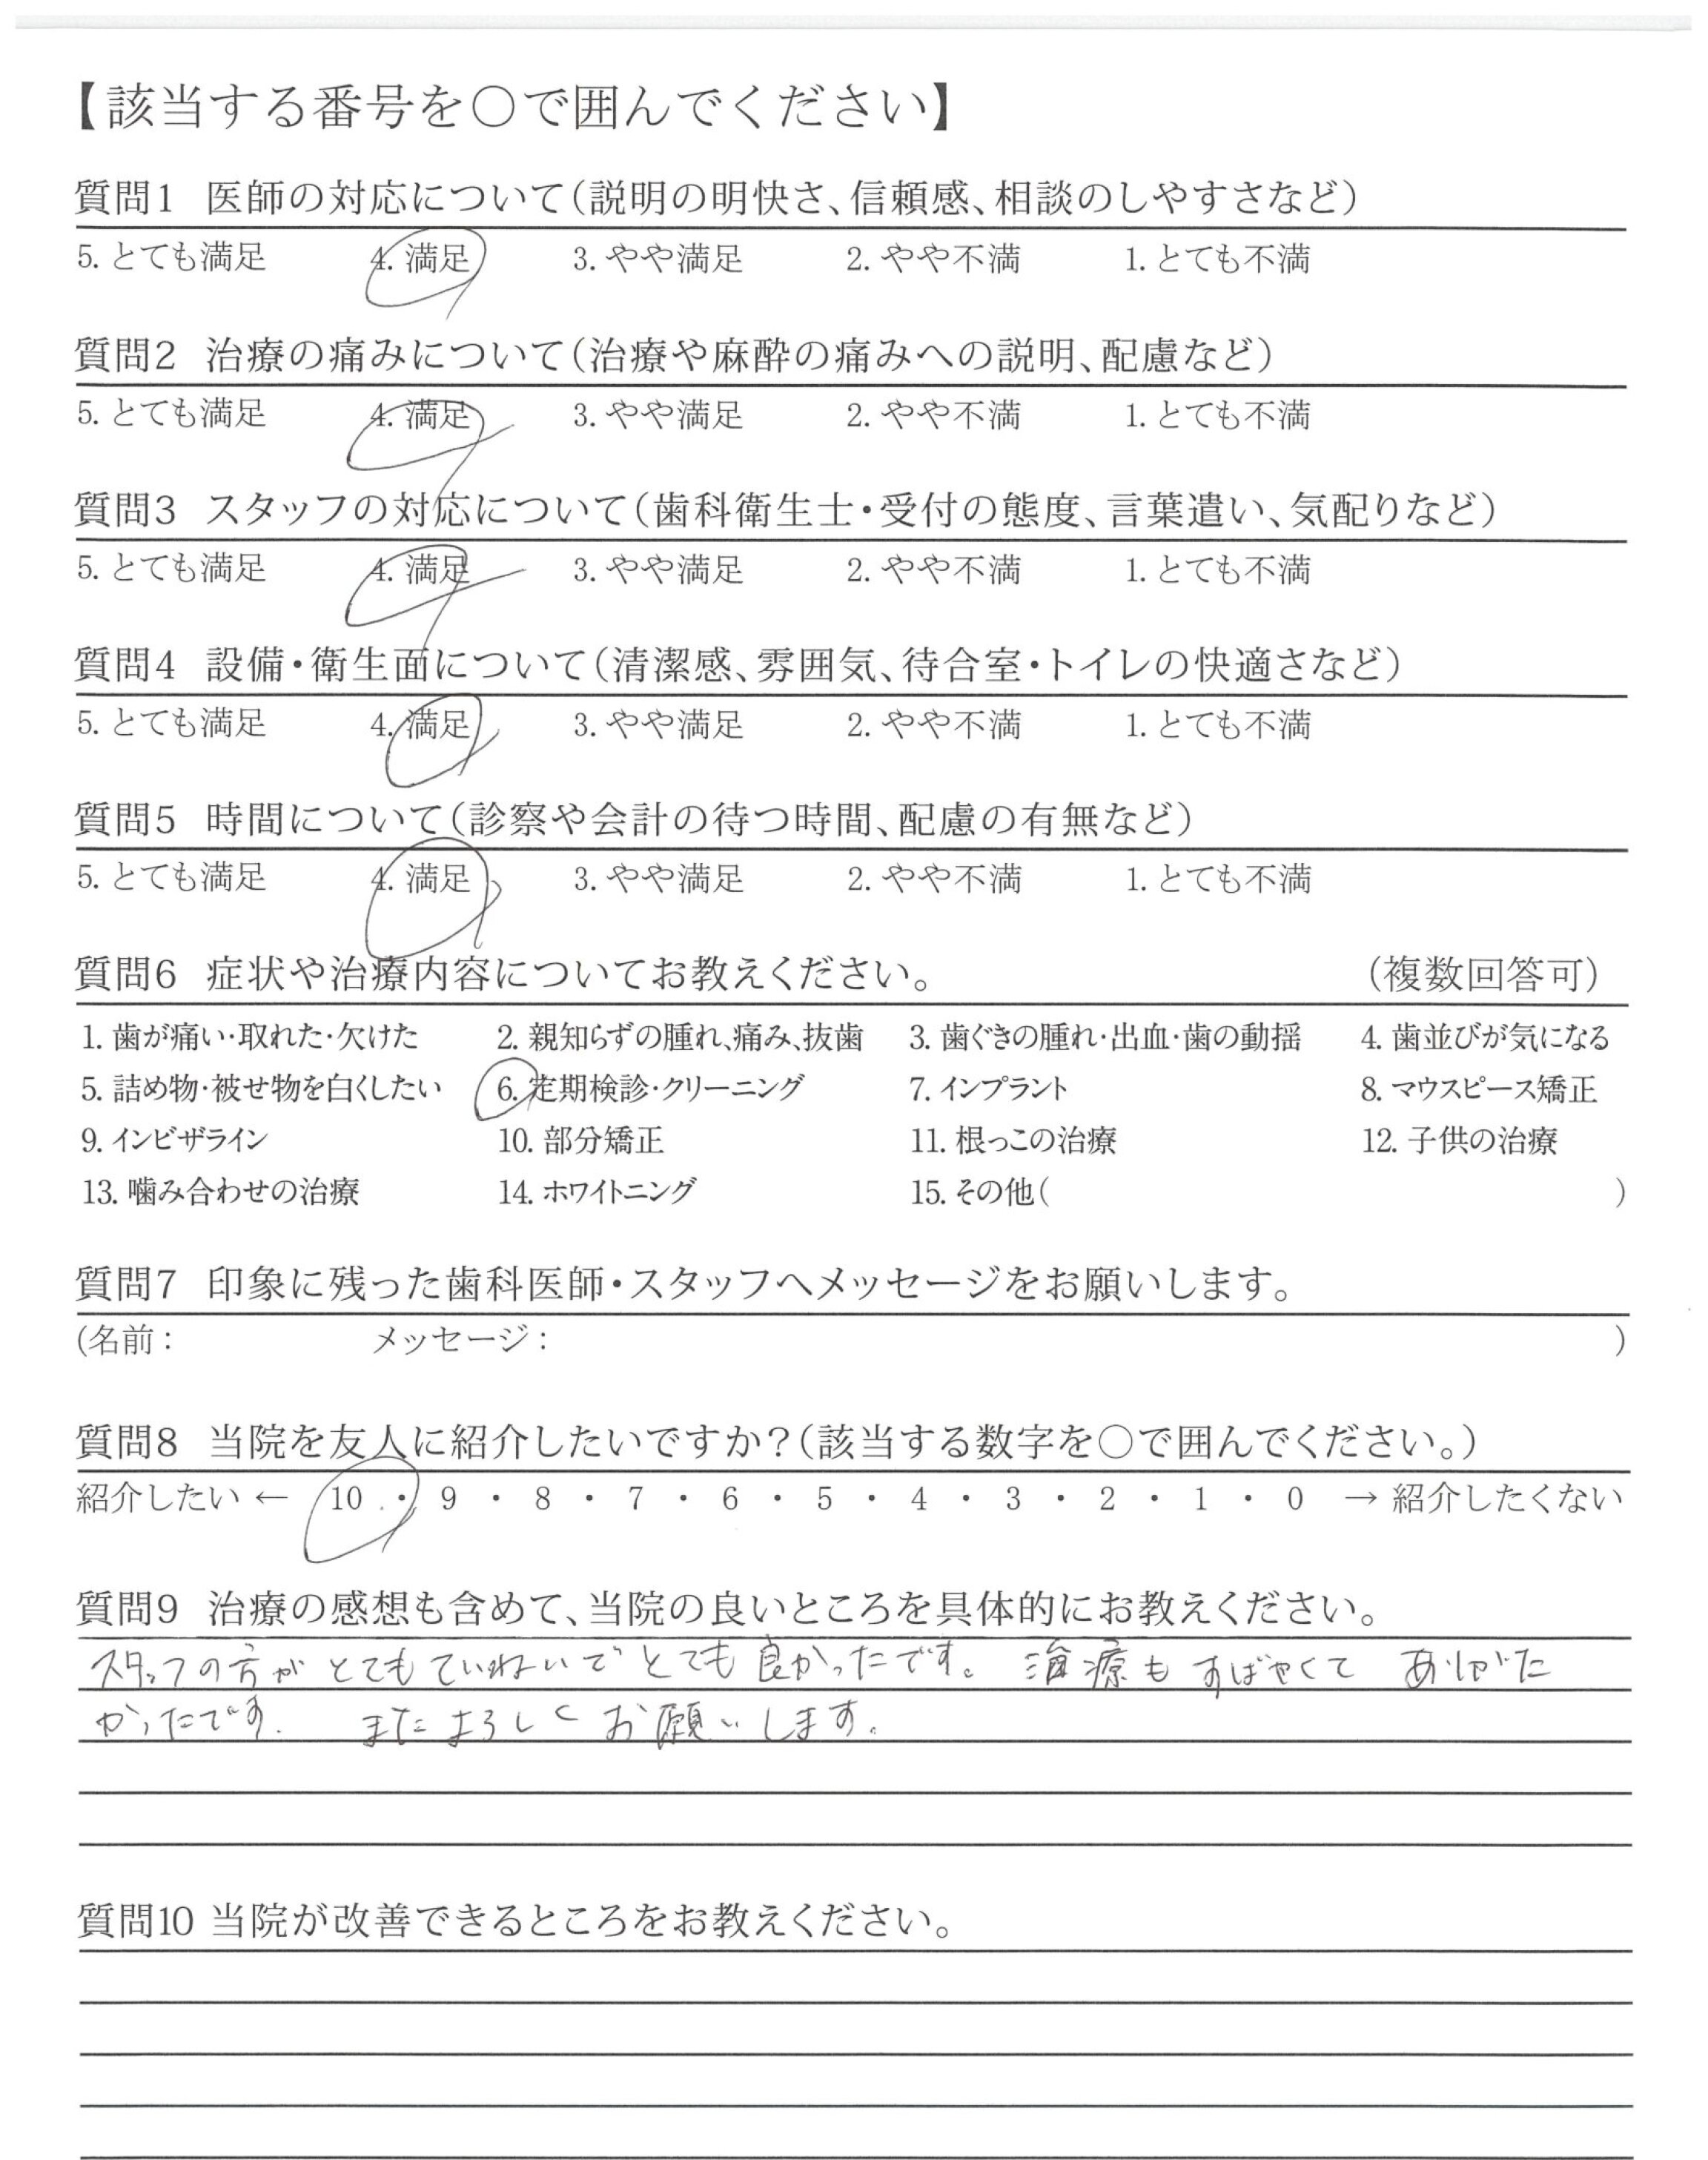 【該当する番号を○で囲んでください】
質問1 医師の対応について(説明の明快さ、信頼感、相談のしやすさなど)
5. とても満足 4. 満足 3. やや満足 2. やや不満 1. とても不満
質問2 治療の痛みについて(治療や麻酔の痛みへの説明、配慮など)
5. とても満足 4. 満足 3. やや満足 2. やや不満 1. とても不満
質問3 スタッフの対応について(歯科衛生士・受付の態度、言葉遣い、気配りなど)
5. とても満足 4. 満足 3. やや満足 2. やや不満 1. とても不満
質問4 設備・衛生面について(清潔感、雰囲気、待合室・トイレの快適さなど)
5. とても満足 4. 満足 3. やや満足 2. やや不満 1. とても不満
質問5 時間について(診察や会計の待つ時間、配慮の有無など)
5. とても満足 4. 満足 3. やや満足 2. やや不満 1. とても不満
質問6 症状や治療内容についてお教えください。 (複数回答可)
1. 歯が痛い・取れた・欠けた 2. 親知らずの腫れ、痛み、抜歯 3. 歯ぐきの腫れ・出血・歯の動揺 4. 歯並びが気になる
5. 詰め物・被せ物を白くしたい 6. 定期検診・クリーニング 7. インプラント 8. マウスピース矯正
9. インビザライン 10. 部分矯正 11. 根っこの治療 12. 子供の治療
13. 噛み合わせの治療 14. ホワイトニング 15. その他( )
質問7 印象に残った歯科医師・スタッフへメッセージをお願いします。
(名前: メッセージ: )
質問8 当院を友人に紹介したいですか?(該当する数字を○で囲んでください。)
紹介したい ← 10 ・ 9 ・ 8 ・ 7 ・ 6 ・ 5 ・ 4 ・ 3 ・ 2 ・ 1 ・ 0 → 紹介したくない
質問9 治療の感想も含めて、当院の良いところを具体的にお教えください。
スタッフの方がとてもていねいでとても良かったです。 治療もすばやくて ありがた
かったです. またよろしくお願いします。
質問10 当院が改善できるところをお教えください。